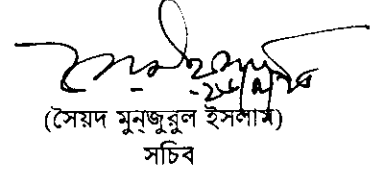 (সৈয়দ মুন্জুরুল ইসলাম)
সচিব